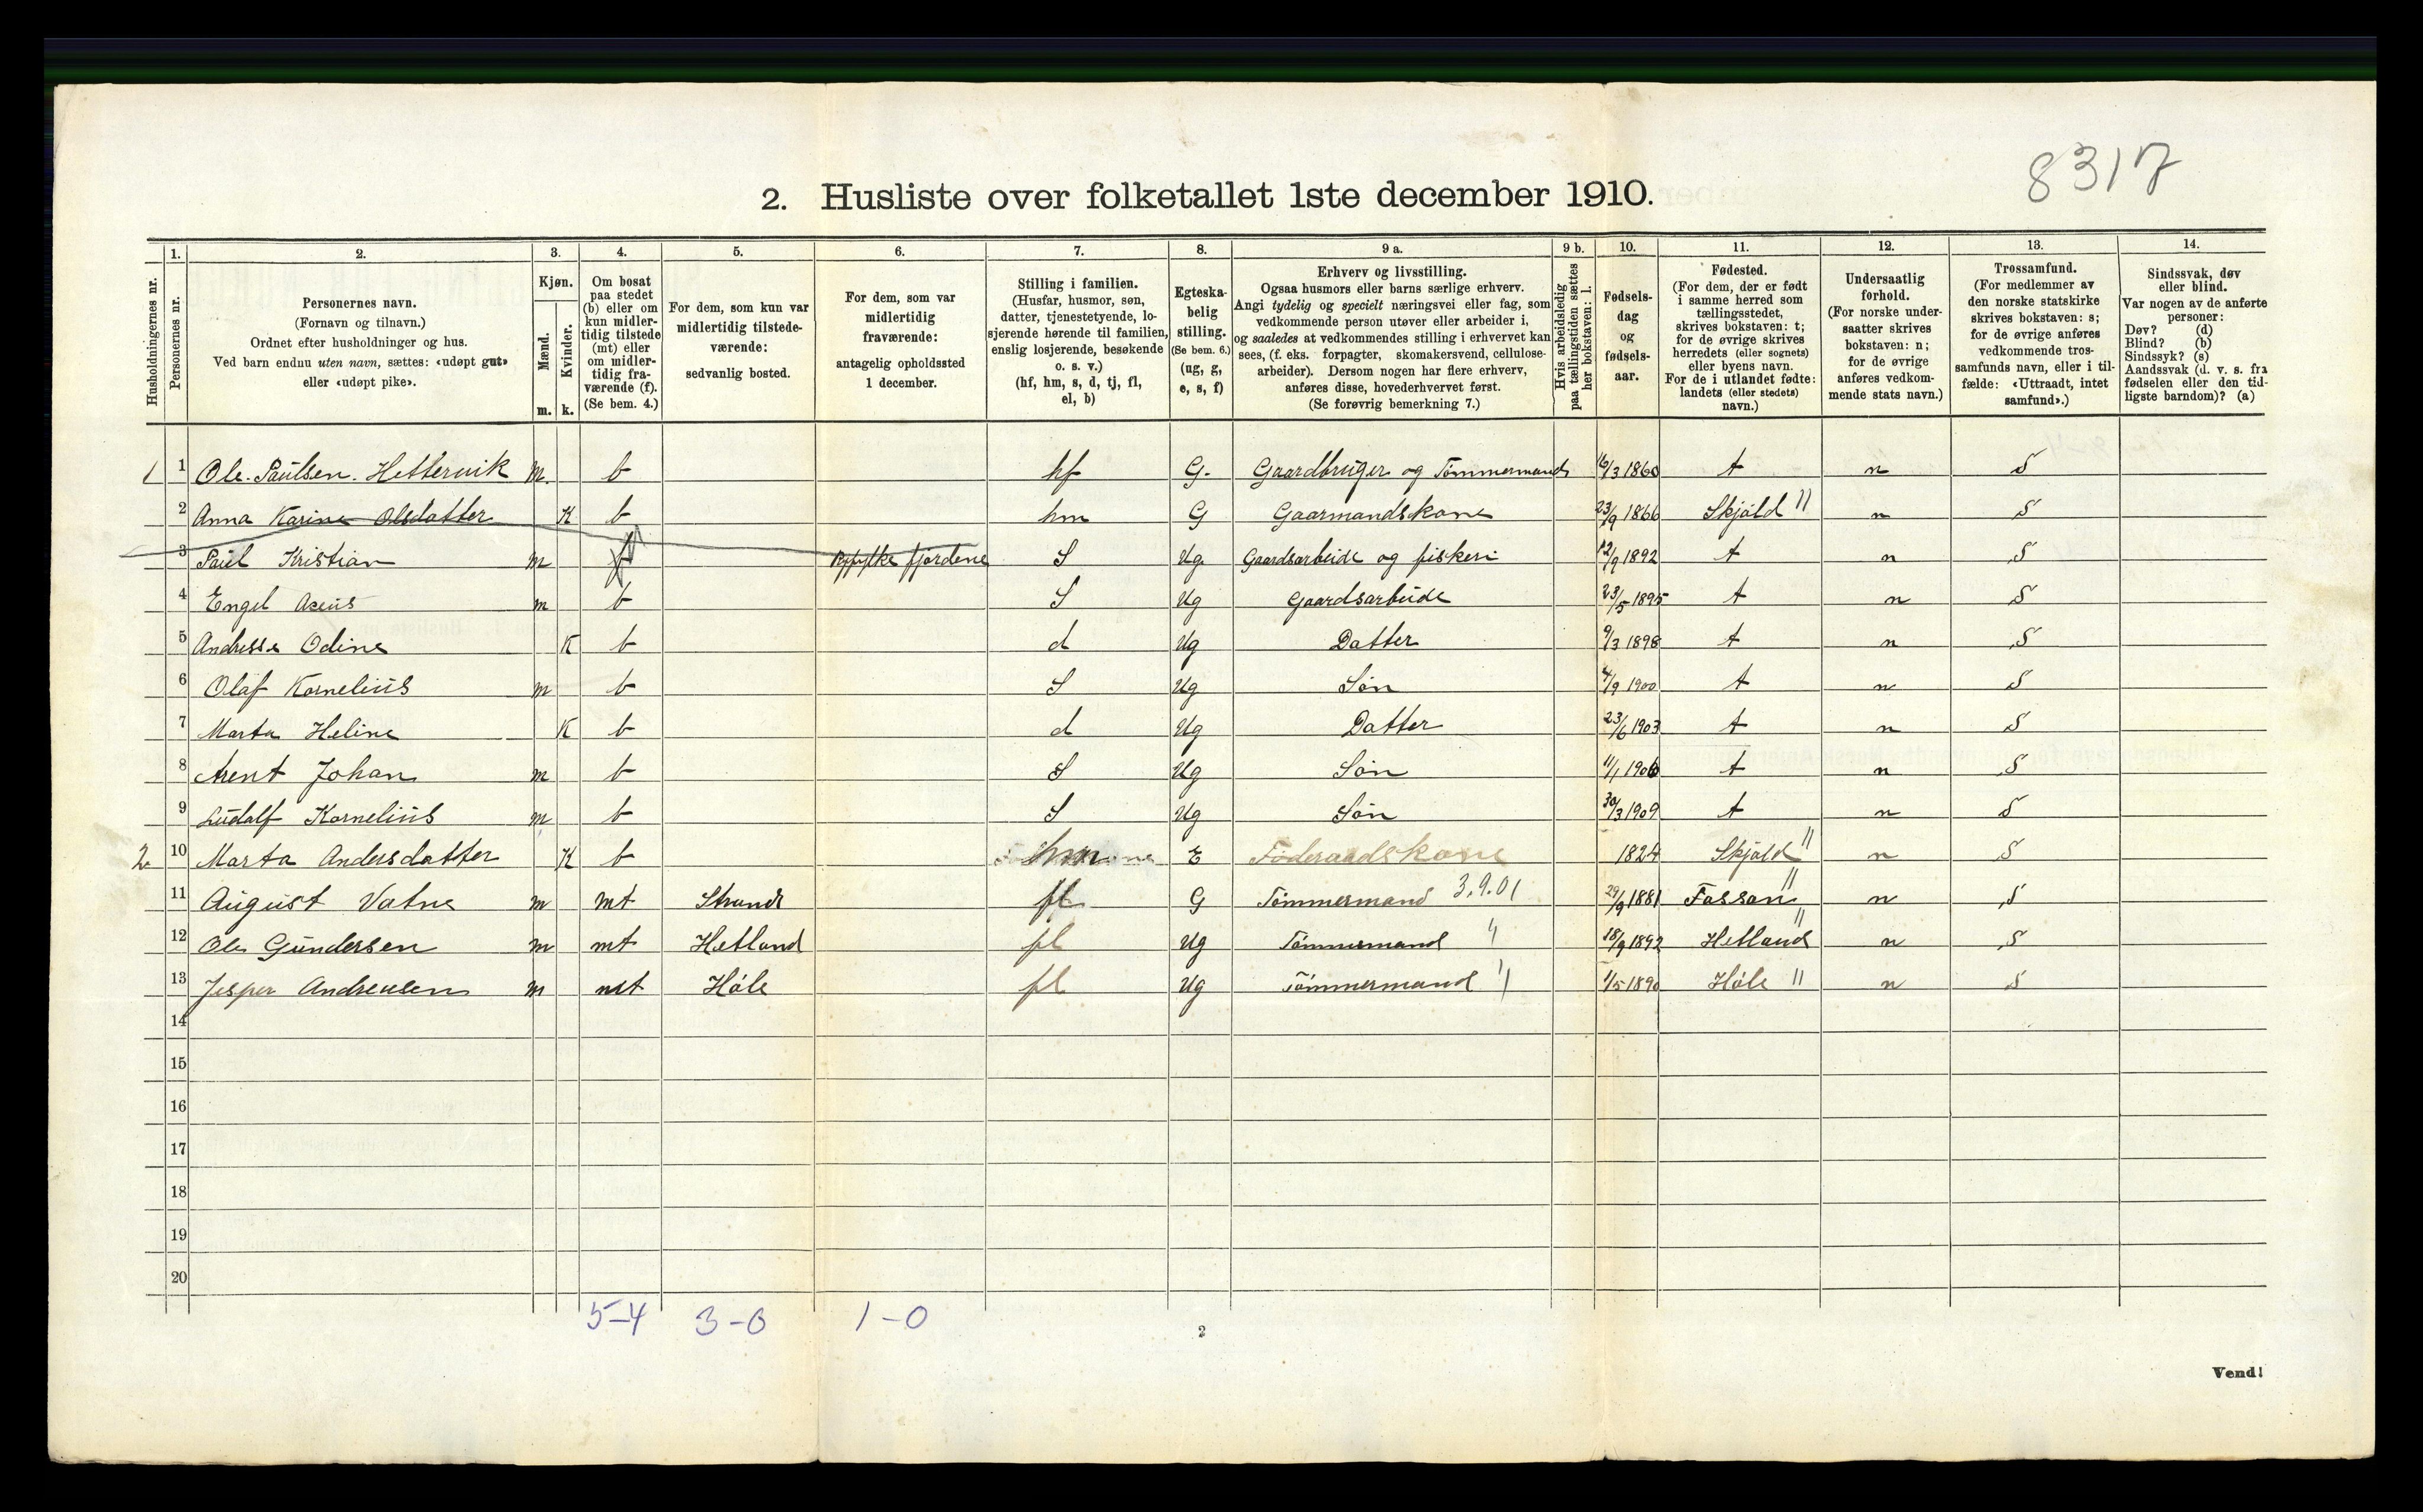 8317
2. Husliste over folketallet 1ste december 1910.
Husholdningernes nr.
1. Personernes nr.
2. Personernes navn. (Fornavn og tilnavn.) Ordnet efter husholdninger og hus. Ved barn endnu uten navn, sættes: «udøpt gut» eller «udøpt pike».
3. Kjøn. Mænd. m. Kvinder. k.
4. Om bosat paa stedet (b) eller om kun midlertidig tilstede (mt) eller om midlertidig fraværende (f). (Se bem. 4.)
5. For dem, som kun var midlertidig tilstedeværende: sedvanlig bosted.
6. For dem, som var midlertidig fraværende: antagelig opholdssted 1 december.
7. Stilling i familien. (Husfar, husmor, søn, datter, tjenestetyende, losjerende hørende til familien, enslig losjerende, besøkende o. s. v.) (hf, hm, s, d, tj, fl, el, b)
8. Egteskabelig stilling. (Se bem. 6.) (ug, g, e, s, f)
9 a. Erhverv og livsstilling. Ogsaa husmors eller barns særlige erhverv. Angi tydelig og specielt næringsvei eller fag, som vedkommende person utøver eller arbeider i, og saaledes at vedkommendes stilling i erhvervet kan sees, (f. eks. forpagter, skomakersvend, cellulosearbeider). Dersom nogen har flere erhverv, anføres disse, hovederhvervet først. (Se forøvrig bemerkning 7.)
9 b. Hvis arbeidsledig paa tællingstiden sættes her bokstaven: l.
10. Fødselsdag og fødselsaar.
11. Fødested. (For dem, der er født i samme herred som tællingsstedet, skrives bokstaven: t; for de øvrige skrives herredets (eller sognets) eller byens navn. For de i utlandet fødte: landets (eller stedets) navn.)
12. Undersaatlig forhold. (For norske undersaatter skrives bokstaven: n; for de øvrige anføres vedkommende stats navn.)
13. Trossamfund. (For medlemmer av den norske statskirke skrives bokstaven: s; for de øvrige anføres vedkommende trossamfunds navn, eller i tilfælde: «Uttraadt, intet samfund».)
14. Sindssvak, døv eller blind. Var nogen av de anførte personer: Døv? (d) Blind? (b) Sindssyk? (s) Aandssvak (d. v. s. fra fødselen eller den tidligste barndom)? (a)
1 1 Ole Paulsen Hettervik m b hf G. Gaardbruger og Tømmermand 16/3 1860 t n S
2 Anna Karine Olsdatter K b hm G Gaarmandskone 23/9 1866 Skjold " n S
3 Paul Kristian m f Ryfylke fjordene S Ug. Gaardsarbeide og fiskeri 12/9 1892 t n S
4 Engel Aseus m b S Ug Gaardsarbeide 23/5 1895 t n S
5 Andresse Odine K b d Ug Datter 9/3 1898 t n S
6 Olaf Kornelius m b S Ug Søn 4/9 1900 t n S
7 Marta Heline K b d Ug Datter 23/6 1903 t n S
8 Arent Johan m b S Ug Søn 11/1 1906 t n S
9 Ludalf Kornelius m b S Ug Søn 30/3 1909 t n S
2 10 Marta Andersdatter K b hm E Føderaadskone 1824 Skjold " n S
11 August Vatne m mt Strand fl G Tømmermand 3.9.01 29/9 1881 Fossan " n S
12 Ole Gundersen m mt Hetland fl Ug Tømmermand " 18/9 1892 Hetland " n S
13 Jesper Andreasen m mt Høle fl Ug Tømmermand " 1/5 1890 Høle " n S
14
15
16
17
18
19
20
5-4 3-0 1-0
2
Vend!